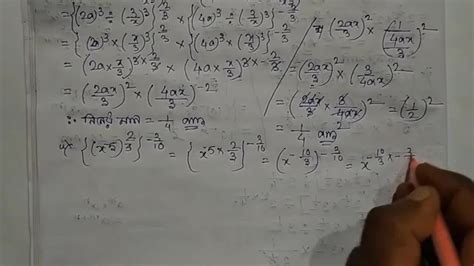 = {(2a)³ ÷ (3/x)³}^2/3 × {(4a)³ ÷ (3/x)³}^-2/3
= {(2a)³ × (x/3)³}^2/3 × {(4a)³ × (x/3)³}^-2/3
= (2a × x/3)^3×2/3 × (4a × x/3)^3×-2/3
= (2ax/3)² × (4ax/3)^-2
= (2ax/3)² × (1/(4ax/3))²
= (2ax/3)² × (3/4ax)²
= (2ax/3 × 3/4ax)² = (1/2)²
= 1/4 ans
∴ নির্ণেয় মান = 1/4 ans
{(x^-5)^2/3}^-3/10 = {x^-5 × 2/3}^-3/10 = (x^-10/3)^-3/10 = x^-10/3 × -3